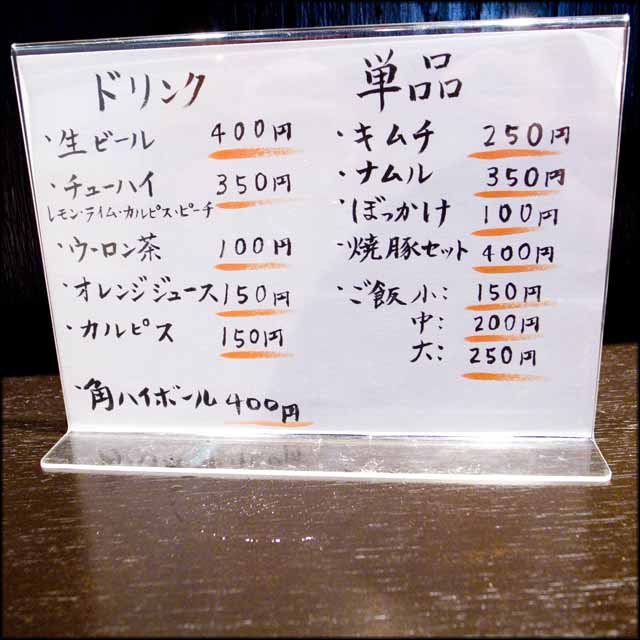 ドリンク
・生ビール 400円
・チューハイ 350円
レモン・ライム・カルピス・ピーチ
・ウーロン茶 100円
・オレンジジュース 150円
・カルピス 150円
・角ハイボール 400円
単品
・キムチ 250円
・ナムル 350円
・ぼっかけ 100円
・焼豚セット 400円
・ご飯 小: 150円
中: 200円
大: 250円